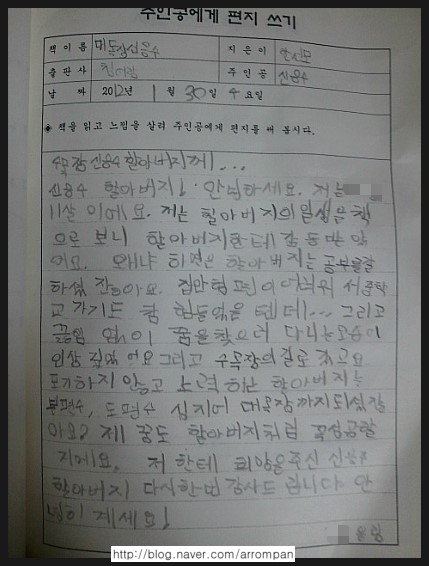 주인공에게 편지 쓰기
책 이름 대목장신응수 지은이 안선모
출판사 주인공 신응수
날 짜 2012년 1월 30일 요일
◆ 책을 읽고 느낌을 살려 주인공에게 편지를 써 봅시다.
신응수 할아버지께...
신응수 할아버지! 안녕하세요. 저는
11살 이에요. 저는 할아버지의 일생을 책
으로 보니 할아버지한테 감동받았
어요. 왜냐하면 할아버지는 공부를잘
하셨 잖아요. 집안형편이 어려워 서 중학
교 가기도 참 힘들었을 텐데... 그리고
끊임 없이 꿈을찾으러 다니는모습이
인상 깊었어요 그리고 수목장의길로 가고요
포기하지 않고 노력 하는 할아버지는
부편수, 도편수 심지어 대목장까지되셨잖
아요? 제 꿈도 할아버지처럼 꼭성공할
거에요. 저 한테 희망을주신 신응수
할아버지 다시한번 감사드립니다 안
녕히 계세요!
올림
http://blog.naver.com/arrompan